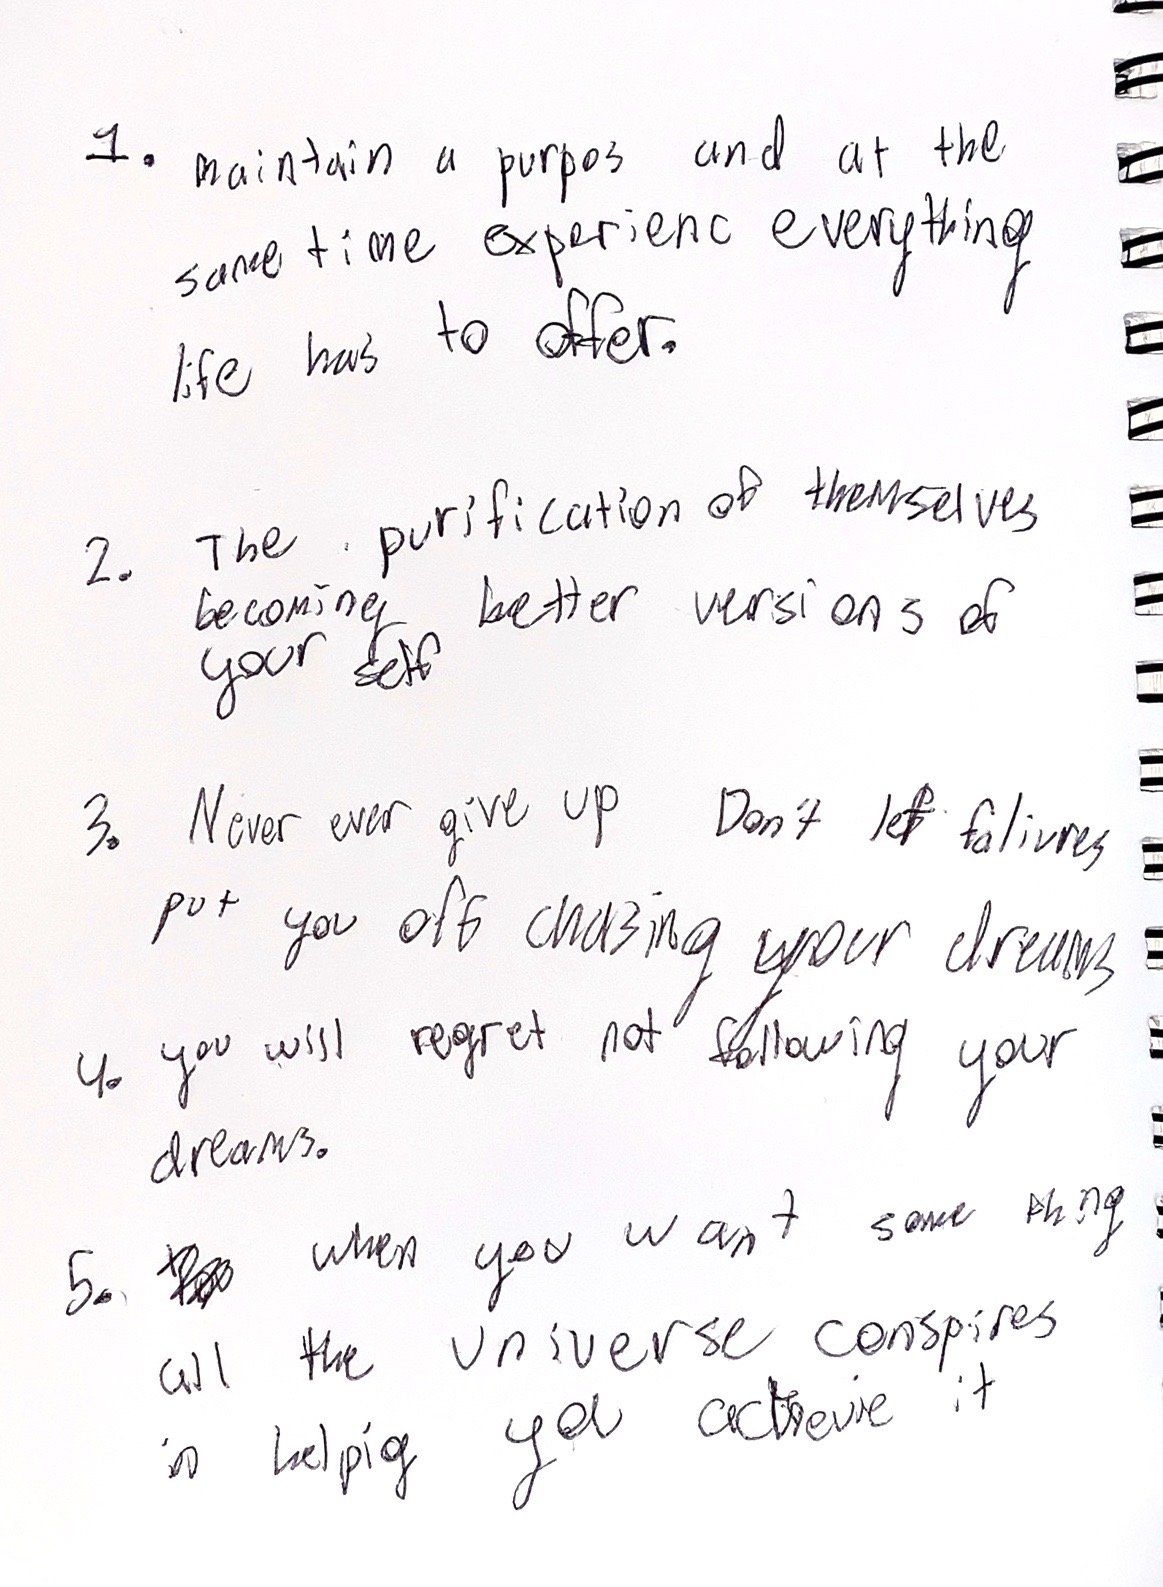 1. maintain a purpos and at the
same time experienc everything
life has to offer.
2. The purification of themselves
becoming better versions of
your self
3. Never ever give up Don't let faliures
put you off chasing your dreams
4. you will regret not following your
dreams.
5. when you want some thing
all the universe conspires
in helpig you achevie it